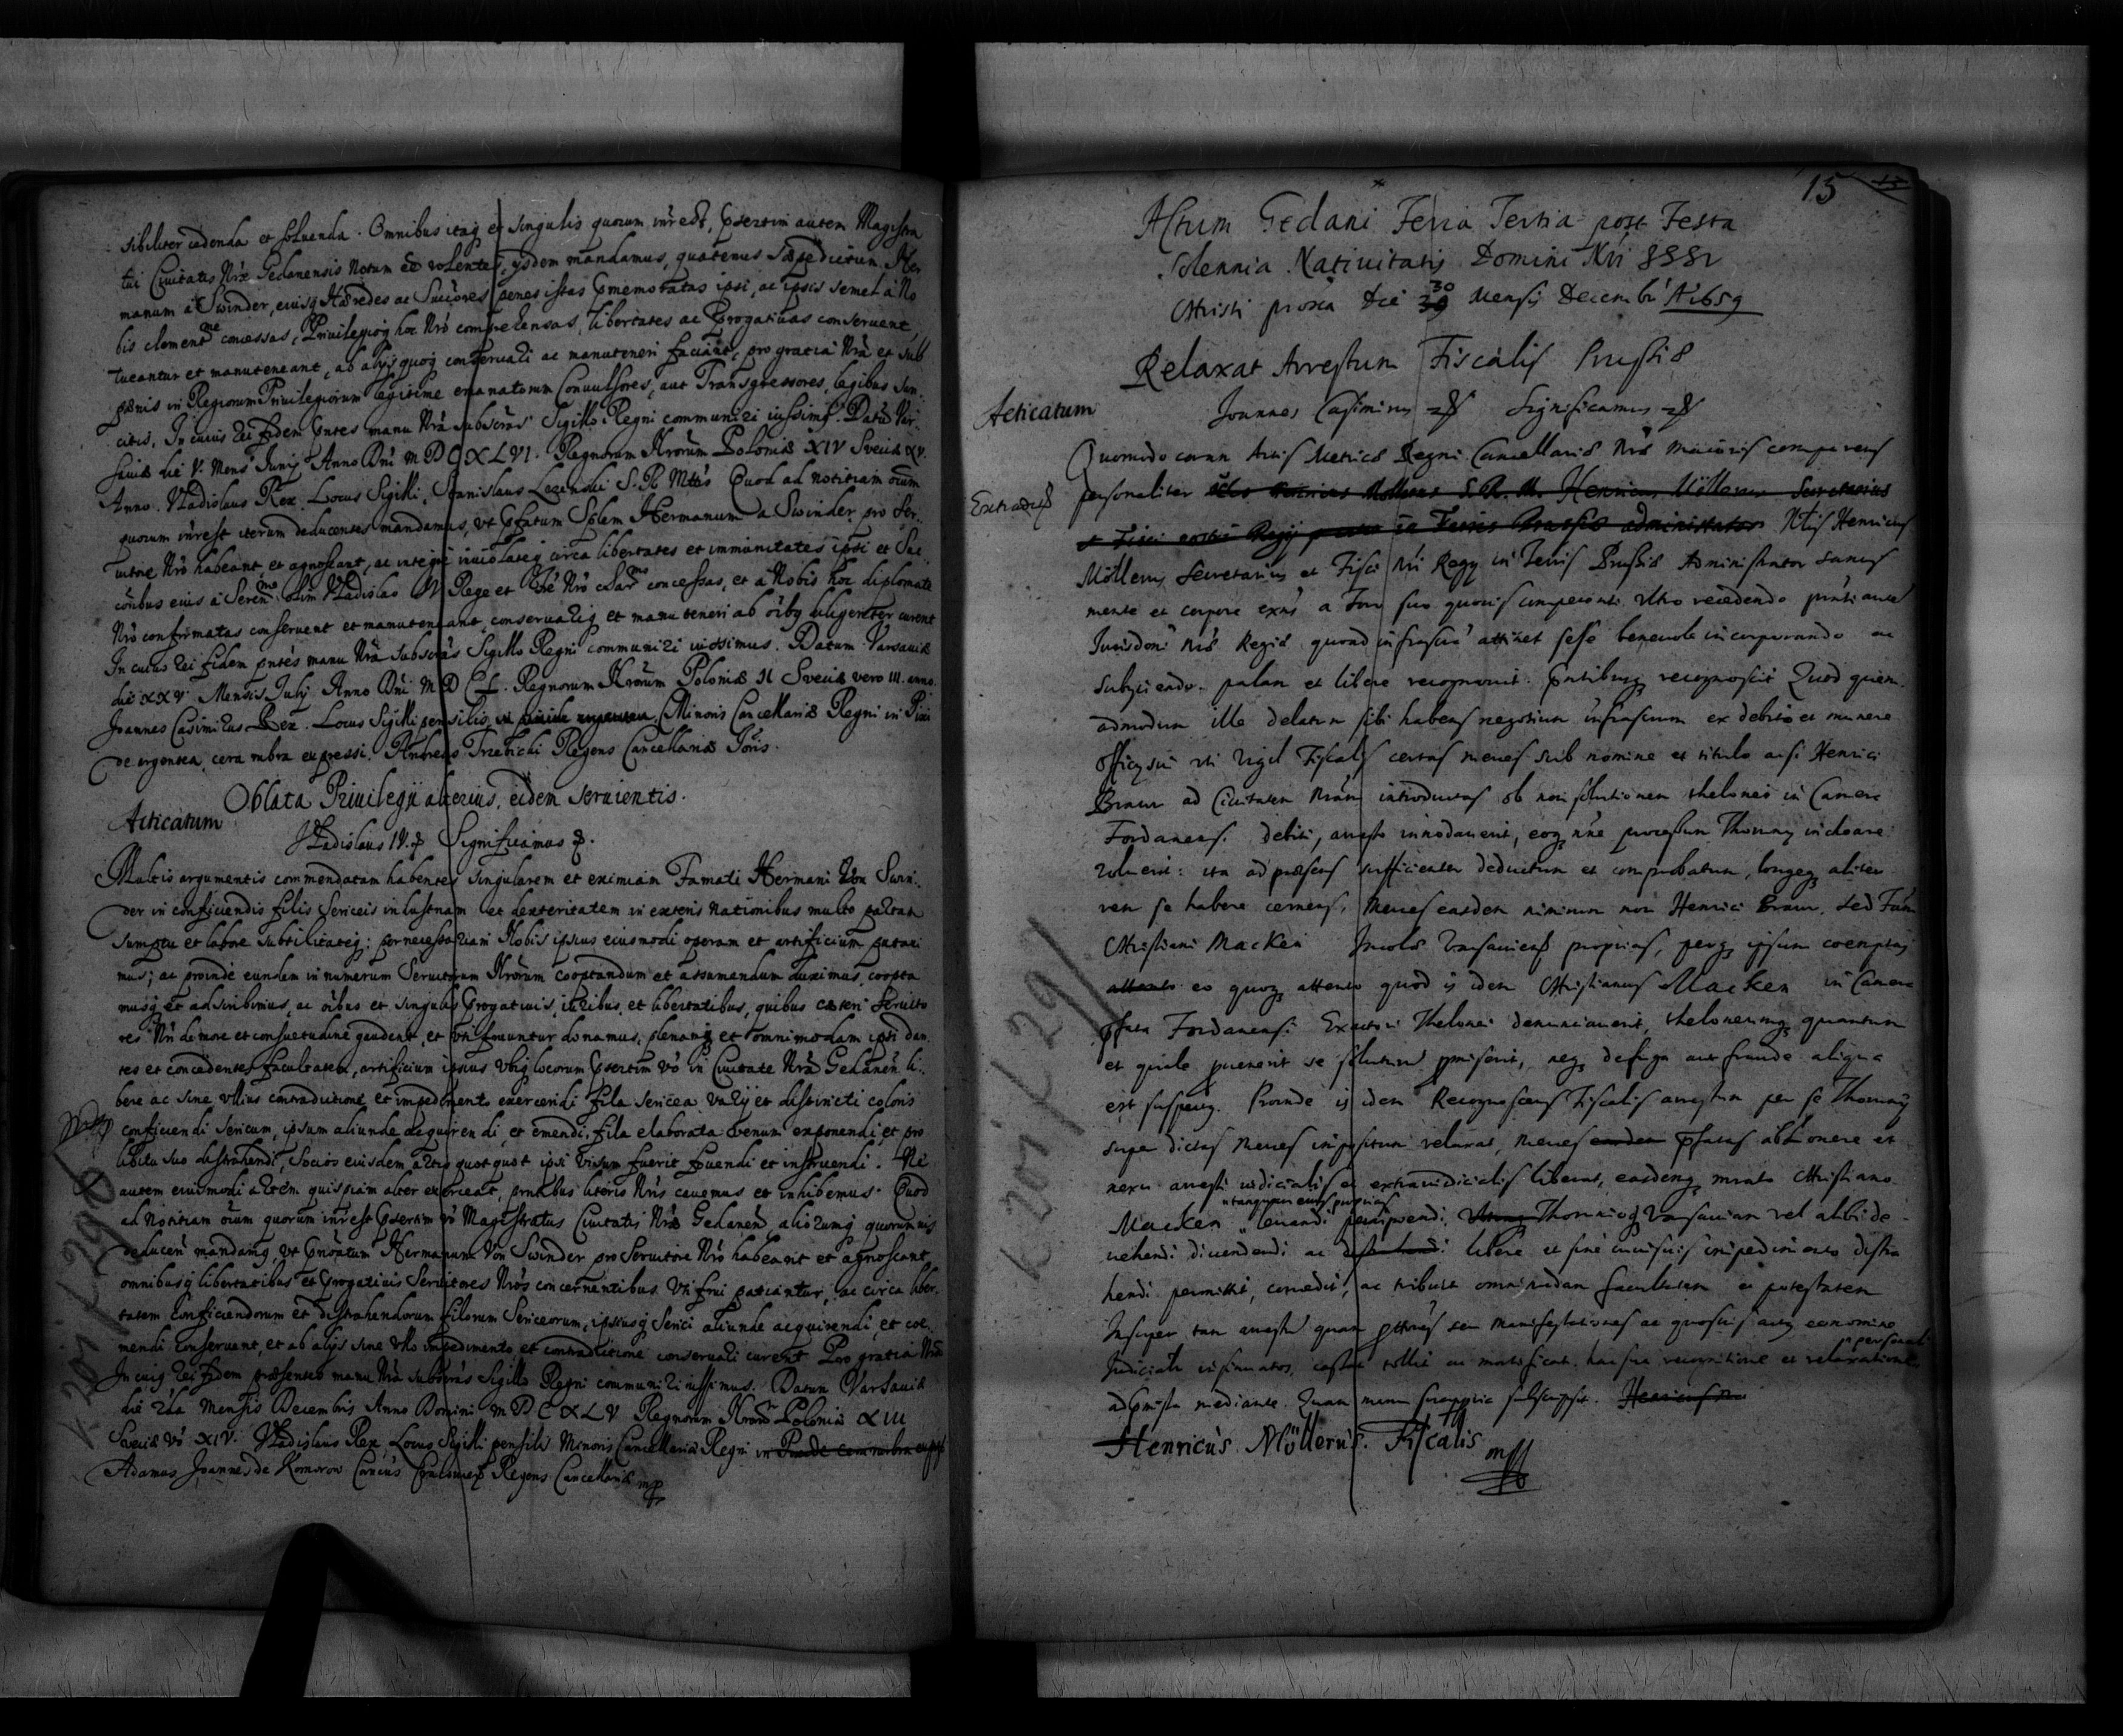 sibiliter cedenda et soluenda. Omnibus itaq et singulis quorum inrest, Psertim autem Magistra
tui Civitatis Nrae Gedanensis Notum ee volentes, ysdem mandamus, quatenus Saepedictum Her
manum à Swinder, eiusq Haeredes ac Succores penes istas Pmemoratas ipsi, ac ipsis semet à No
bis clementme concessas, Privilegioq hoc Nro comprehensas, libertates ac Progativas conseruent,
tueantur et manuteneant, ab alys quoq conseruari ac manuteneri faciant, pro gratia Nra et sub
paenis in Regiorum Privilegiorum legitime emanatorum Convulsores, aut Transgressores, legibus san
citis. In cuius rei fidem Pntes manu Nra subscras Sigillo Regni communiri iussimus. Datu Var
saviae die V. Mens Juny Anno Dni MDCXLVI. Regnorum Nrorum Poloniae XIV Sveciae XV.
Anno. Vladislaus Rex. Locus Sigilli, Stanislaus S. R. Mttis Quod ad notitiam oium
quorum inrest iterum deducentes mandamus, vt Pfatum Splem Hermanum a Swinder pro Ser
uitore Nro habeant et agnoscant, ac integre inviolateq circa libertates et immunitates ipsi et Suc
coribus eius à Serenmo olim Vladislao IV Rege et Fre Nro charmo concessas, et à Nobis hoc diplomate
Nro confirmatas conseruent et manuteneant, conseruariq et manuteneri ab oibq diligenter curent
In cuius rei fidem pntes manu Nra subscras Sigillo Regni communiri iussimus. Datum Varsaviae
die XXV Mensis July Anno Dni MDCL. Regnorum Nrorum Poloniae II Sveciae vero III. anno.
Joannes Casimirus Rex. Locus Sigilli pensilis, Minoris Cancellariae Regni in Pixi
de argentea, cera rubra expressi. Andreas Trzebicki Regens Cancellariae Joris.
Oblata Privilegij alterius, eidem seruientis.
Acticatum
Vladislaus IV. Significamus
Multis argumentis commendatam habentes singularem et eximiam Famati Hermani Von Swin
der in conficiendis filis Sericeis industriam et dexteritatem in exteris nationibus multo partam
sumptu et labore subtilitateq: pernecessariam Nobis ipsius eiusmodi operam et artificium putaui
mus; ac proinde eundem in numerum Seruitorum Nrorum cooptandum et assumendum duximus, coopta
musq et adscribimus, ac oibus et singulis Progativis, iuribus, et libertatibus, quibus caeteri Seruito
res Nri de more et consuetudine gaudent, et vti fruuntur donamus, plenamq et omnimodam ipsi dan
tes et concedentes facultatem, artificium ipsius vbiq locorum Psertim vo in Civitate Nra Gedanen li
bere ac sine vllius contradictione et impedimento exercendi fila sericea varij et distincti coloris
conficiendi sericum, ipsum aliunde acquirendi, et emendi, fila elaborata venum exponendi et pro
libitu suo distrahendi, Socios eiusdem artis quotquot ipsi visum fuerit fouendi et instruendi. Ne
autem eiusmodi artem quispiam alter exerceat, prntibus literis Nris cauemus et inhibemus. Quod
ad Notitiam oium quorum inrest Psertim vo Magistratus Civitatis Nrae Gedanen, aliorumq quorumuis
deducen mandamq, vt Pnoatum Hermanum Von Swinder pro Seruitore Nro habeant et agnoscant,
omnibusq libertatibus et Progativis Seruitores Nros concernentibus Vti frui patiantur, ac circa liber
tatem conficiendorum et distrahendorum filorum Sericeorum, ipsiusq Serici aliunde acquirendi, et coe
mendi conseruent, et ab alijs sine vllo impedimento et contradictione conseruari curent Pro gratia Nra
In cuiq rei fidem praesentes manu Nra subscras Sigillo Regni communiri iussimus. Datum Varsaviae
die 21a Mensis Decembris Anno Domini MDCXLV Regnorum Nrorum Poloniae XIII
Sveciae vo XIV. Vladislaus Rex Locus Sigilli pensilis Minoris Cancellariae Regni in
Adamus Joannes de Komorow Regens Cancellariae mp
15
Actum Gedani Feria Tertia post Festa
Solennia Nativitatis Domini Nri
Christi proxa Die 30 Mensis Decembr Ao 1659
Relaxat Arrestum Fiscalis Prussiae
Acticatum
Joannes Casimirus Significamus
Quomodo coram Actis Metrices Regni Cancellariae Nrae Maioris comparens
personaliter Henricus Möllerus Secretarius
Nlis Henricus
Möllerus Secretarius et Fisci Nri Regij in Terris Prussiae Administrator sanus
mente et corpore exns a Foro suo quouis competenti vltro recedendo
Jurisdoni Nrae Regiae quoad infrascra attinet sese benevole incorporando ac
subyciendo. palam et libere recognovit. Pntibusq recognoscit Quod quem
admodum ille delatum sibi habens negotium infrascrum ex debito et munere
Officy sui vti Vigil Fiscalis certas merces sub nomine et titulo Henrici
Braun ad Civitatem Nram introductas ob non solutionem thelonei in Camera
Fordanensi debiti, arresto innodauerit, eoq nne processum Thoruny inchoare
voluerit: ita ad praesens sufficienter deductum et comprobatum, longeq aliter
rem se habere cernens, Merces easdem nimirum non Henrici Braun, sed Fam
Christiani Macken Incolae Varsauiens proprias, perq ipsum coemptas
eo quoq attento quod is idem Christianus Macken in Camera
Pfata Fordanensi Exactori Thelonei denunciauerit, theloneumq quantum
et quale suspectq. Proinde is idem Recognoscens Fiscalis arrestum per se Thoruny
super dictas Merces impositum relaxat, Merces Pfatas ab onere et
nexu arresti iudicialis et extraiudicialis liberas, easdemq Christiano
Macken tanquam euas proprias leuandi percipiendi, Thorunioq Varsauiam vel alibi de
uehendi diuendendi ac libere et sine cuiusuis impedimento distra
hendi permittit, concedit, ac tribuit omnimodam facultatem et potestatem
Insuper tam arresta quam seu Manifestationes ac quosuis
Judicialr insinuatos, cassat tollit ac mortificat. hac sua recognitione et relaxatione personali
adPmissa mediante. Quam manu subscripsit.
Henricus Möllerus. Fiscalis mpp